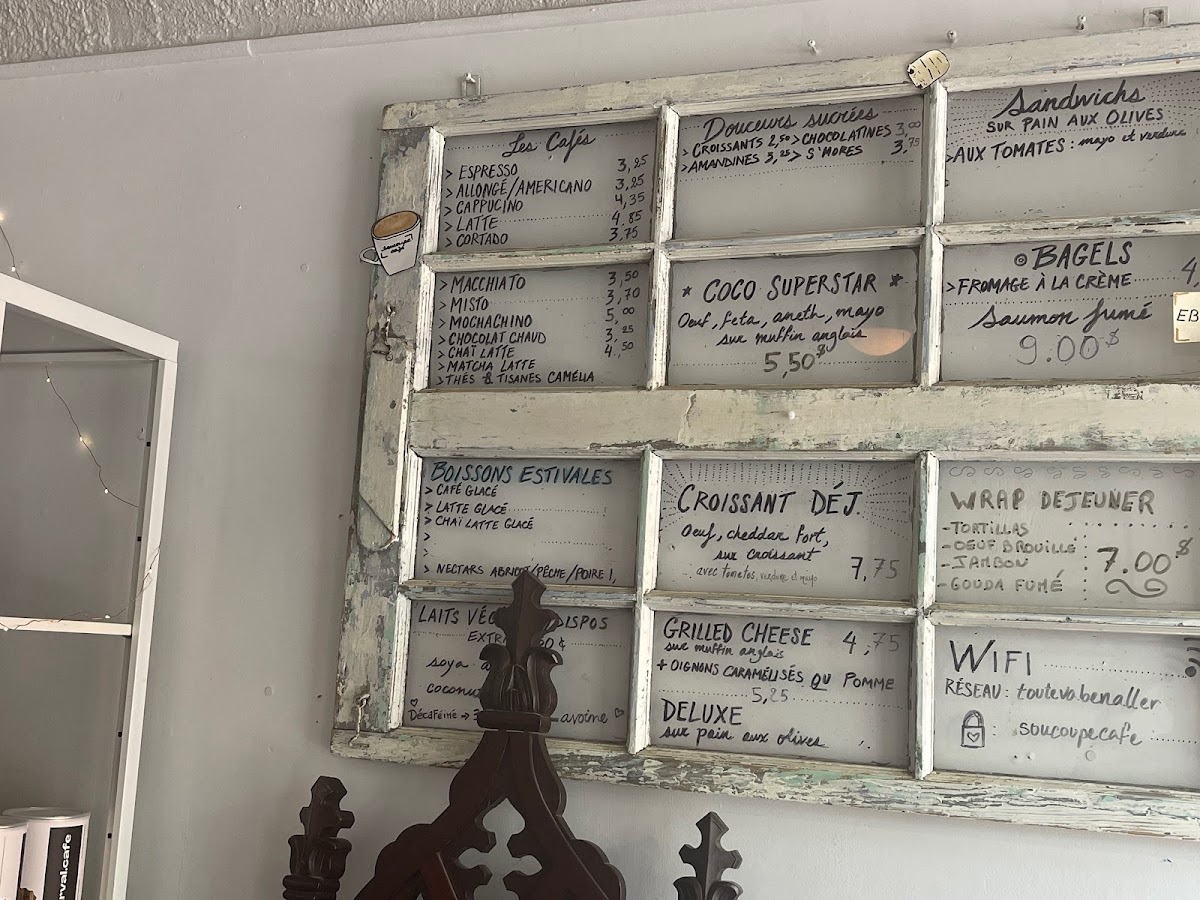 Les Cafés
> ESPRESSO 3,25
> ALLONGÉ/AMERICANO 3,25
> CAPPUCINO 4,35
> LATTE 4.85
> CORTADO 3,75
> MACCHIATO 3,50
> MISTO 3,70
> MOCHACHINO 5,00
> CHOCOLAT CHAUD 3,25
> CHAÏ LATTE 4,50
> MATCHA LATTE
> THÉS & TISANES CAMÉLIA
BOISSONS ESTIVALES
> CAFÉ GLACÉ
> LATTE GLACÉ
> CHAÏ LATTE GLACÉ
>
>
> NECTARS ABRICOT/PÊCHE/POIRE!,
LAITS DISPOS
soya
Décaféiné → avoine
Douceurs sucrées
> CROISSANTS 2,50 > CHOCOLATINES 3,00
> AMANDINES 3,25 > S'MORES 3,75
* COCO SUPERSTAR *
Oeuf, feta, aneth, mayo
sur muffin anglais
5,50$
CROISSANT DÉJ.
Oeuf, cheddar fort,
sur croissant
avec tomates, verdure et mayo 7,75
GRILLED CHEESE 4,75
sur muffin anglais
+ OIGNONS CARAMÉLISÉS OU POMME
5,25
DELUXE
sur pain aux olives
Sandwichs
SUR PAIN AUX OLIVES
> AUX TOMATES: mayo et verdure
BAGELS
> FROMAGE À LA CRÈME 4,
Saumon fumé
9.00$
EB
WRAP DEJEUNER
-TORTILLAS
-OEUF BROUILLÉ
-JAMBON 7.00$
-GOUDA FUMÉ
WIFI
RÉSEAU: toutevabenaller
: soucoupecafe
rval.cafe